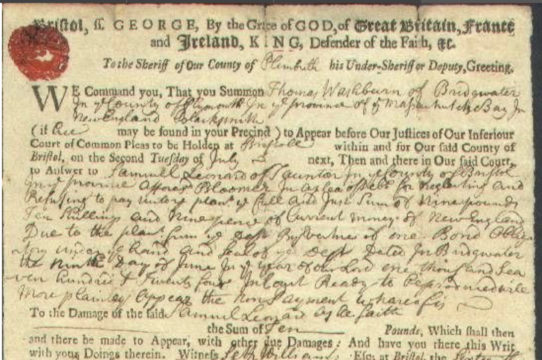 Bristol, ſſ. GEORGE, By the Grace of GOD, of Great Britain, France
and Ireland, KING, Defender of the Faith, &c.
To the Sheriff of Our County of Plimoth his Under-Sheriff or Deputy, Greeting.
WE Command you, That you Summon Thomas Washburn of Bridgwater
In ye County of Plymouth In ye province of ye Massachusetts Bay In
New England Blacksmith
(if he may be found in your Precinct) to Appear before Our Juſtices of Our Inferiour
Court of Common Pleas to be Holden at Bristoll within and for Our ſaid County of
Bristol, on the Second Tuesday of July next, Then and there in Our ſaid Court,
to Anſwer to Samuel Leonard of Taunton In ye County of Bristol
In ye province Bloomer In a plea of Debt for neglecting and
Refusing to pay unto ye plant ye full and Just Sum of Nine pounds
Ten Shillings and Nine pence of Current money of New England
Due to the plant from ye Dept By vertue of one Bond
under ye hand and Seal of ye Dept Dated In Bridgwater
the Ninth Day of June In ye year of our Lord one thousand Sea
ven hundred & Twenty four In Court Ready to be produced
More plainly Appear the Non payment whereof is
To the Damage of the ſaid Samuel Leonard as he ſaith
the Sum of Ten Pounds, Which ſhall then
and there be made to Appear, with other due Damages: And have you there this Writ
with your Doings therein. Witneſs Seth Williams Eſq; at Bristol, the